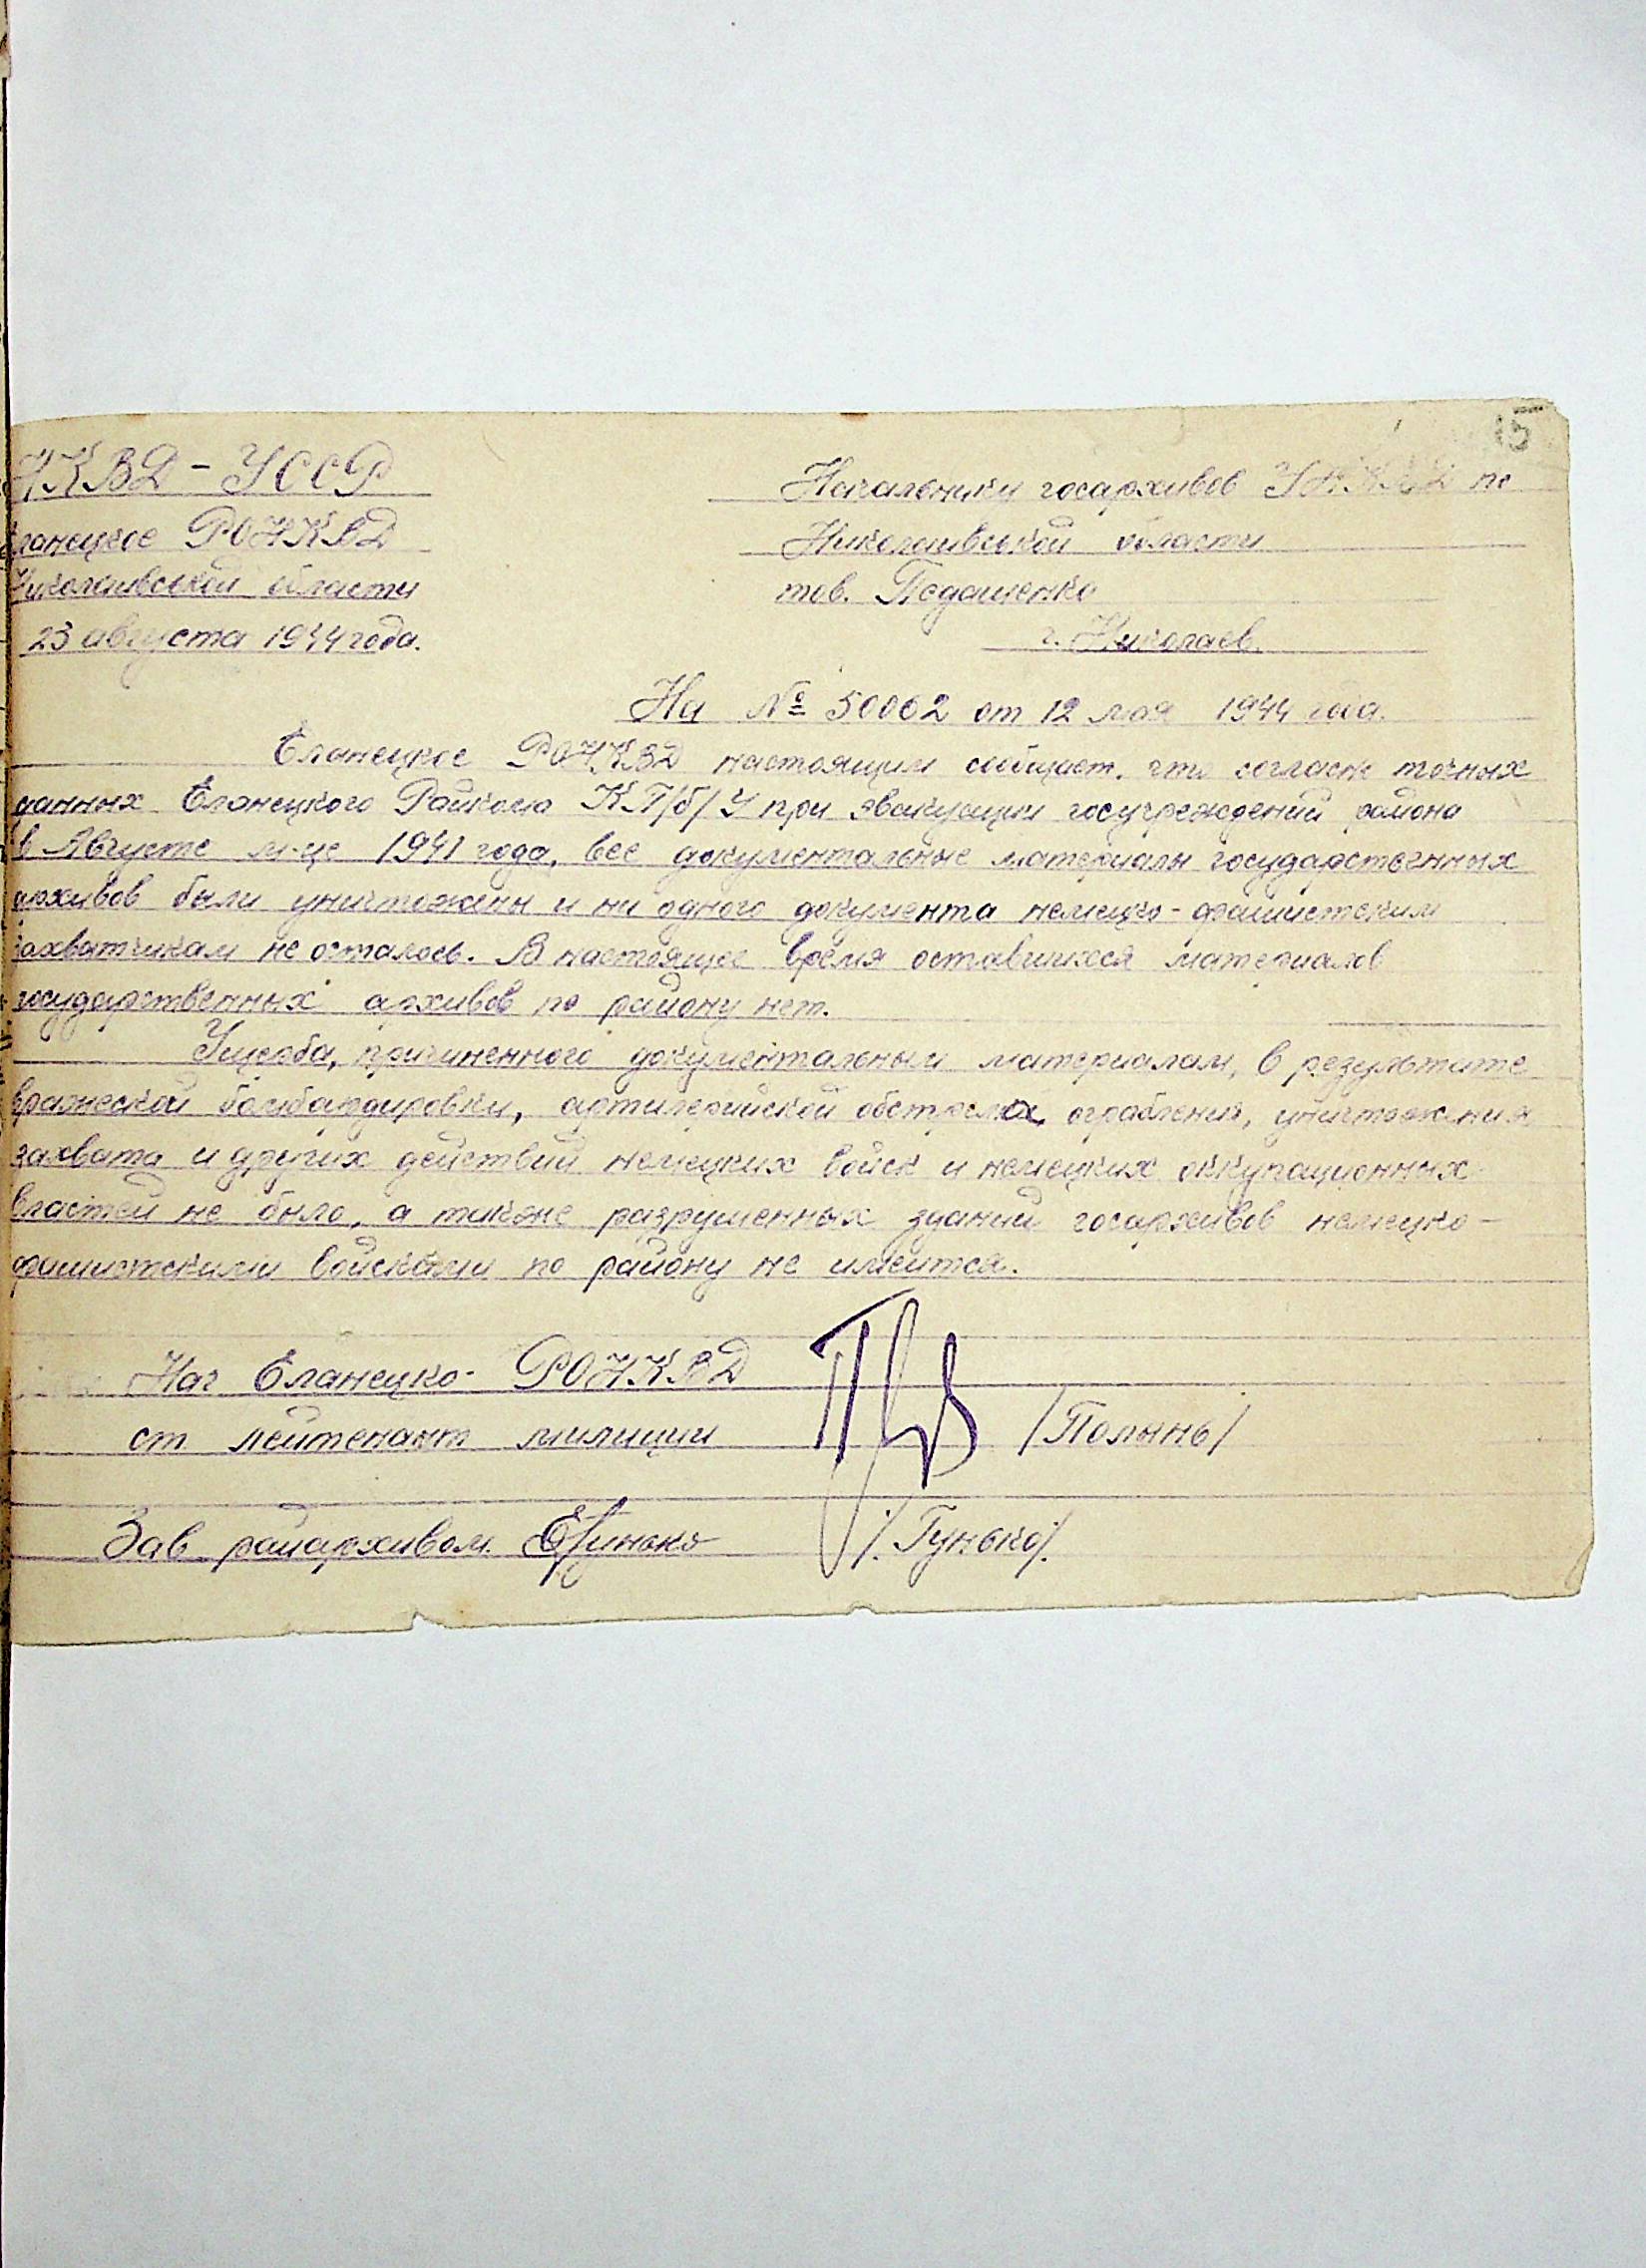 15
НКВД - УССР
Еланецкое РОНКВД
Николаивськой области
23 августа 1944 года.
Начальнику госархивов УНКВД по
Николаивськой области
тов. Педашенко
г. Николаев.
На № 50062 от 12 мая 1944 года.
Еланецкое РОНКВД настоящим сообщает, что согласно точных
данных Еланецкого Райкома КП/б/У при эвакуации госучреждений района
в Августе м-це 1941 года, все документальные материалы государственных
архивов были уничтожены и ни одного документа немецко-фашистским
захватчикам не осталось. В настоящее время оставшихся материалов
государственных архивов по району нет.
Ущерба, причиненного документальным материалам, в результате
вражеской бомбардировки, артилерийской обстрела, ограбления, уничтожения
захвата и других действий немецких войск и немецких оккупационных
властей не было, а также разрушенных зданий госархивов немецко-
фашистскими войсками по району не имеится.
Нач Еланецко- РОНКВД
ст лейтенант милиции /Полынь/
Зав райархивом ЕГунько /.Гунько/.